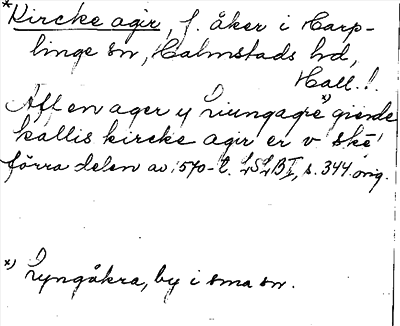 *Kircke agir, f. åker i Harp-
linge sn, Halmstads hd,
Hall.!
Aff en ager y Liungagre*) gierde
kallis kircke agir er v skē
förra delen av 1540-t. LSLB I, s. 344 orig.
*) Lyngåkra, by i sma sn.